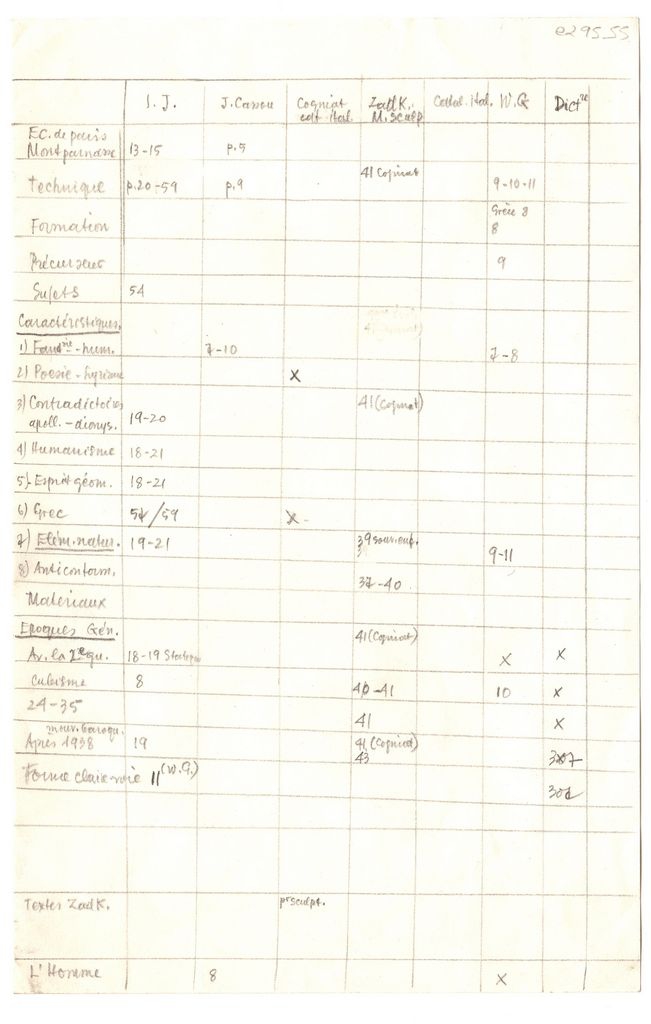 e295.55
I. J. J. Cassou Cogniat Zadk. Catal. Ital. W.G Dict.re
cat Ital. M. Sculp.
Ec. de paris
Montparnasse 13-15 p.5
41 Cogniat
Technique p.20-59 p.9 9-10-11
Grèce 8
Formation 8
Précurseur 9
Sujets 54
Caractéristiques.
1) -hum. 7-10 7-8
2) Poesie-Lyrisme X
3) Contradictoires 41 (Cogniat)
apoll.-dionys. 19-20
4) Humanisme 18-21
5) Esprit géom. 18-21
6) Grec 54/59 X
7) Elém. natur. 19-21 39 souv. enf. 9-11
8) Anticonform. 37-40
Materiaux
Epoques Gén. 41 (Cogniat)
Av. la 1re gu. 18-19 X X
Cubisme 8 40-41 10 X
24-35 41 X
mouv. baroqu.
Apres 1938 19 41 (Cogniat)
43 307
Forme claire-voie 11 (W.G.)
302
Textes Zadk. pr sculpt.
L'Homme 8 X